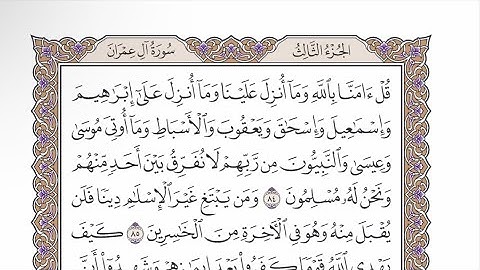 الجُزْءُ الثَّالِثُ سُورَةُ آلِ عِمْرَانَ
قُلْ ءَامَنَّا بِٱللَّهِ وَمَآ أُنزِلَ عَلَيْنَا وَمَآ أُنزِلَ عَلَىٰٓ إِبْرَٰهِيمَ
وَإِسْمَٰعِيلَ وَإِسْحَٰقَ وَيَعْقُوبَ وَٱلْأَسْبَاطِ وَمَآ أُوتِىَ مُوسَىٰ
وَعِيسَىٰ وَٱلنَّبِيُّونَ مِن رَّبِّهِمْ لَا نُفَرِّقُ بَيْنَ أَحَدٍ مِّنْهُمْ
وَنَحْنُ لَهُۥ مُسْلِمُونَ ٨٤ وَمَن يَبْتَغِ غَيْرَ ٱلْإِسْلَٰمِ دِينًا فَلَن
يُقْبَلَ مِنْهُ وَهُوَ فِى ٱلْأَخِرَةِ مِنَ ٱلْخَٰسِرِينَ ٨٥ كَيْفَ
يَهْدِى ٱللَّهُ قَوْمًا كَفَرُوا۟ بَعْدَ إِيمَٰنِهِمْ وَشَهِدُوٓا۟ أَنَّ